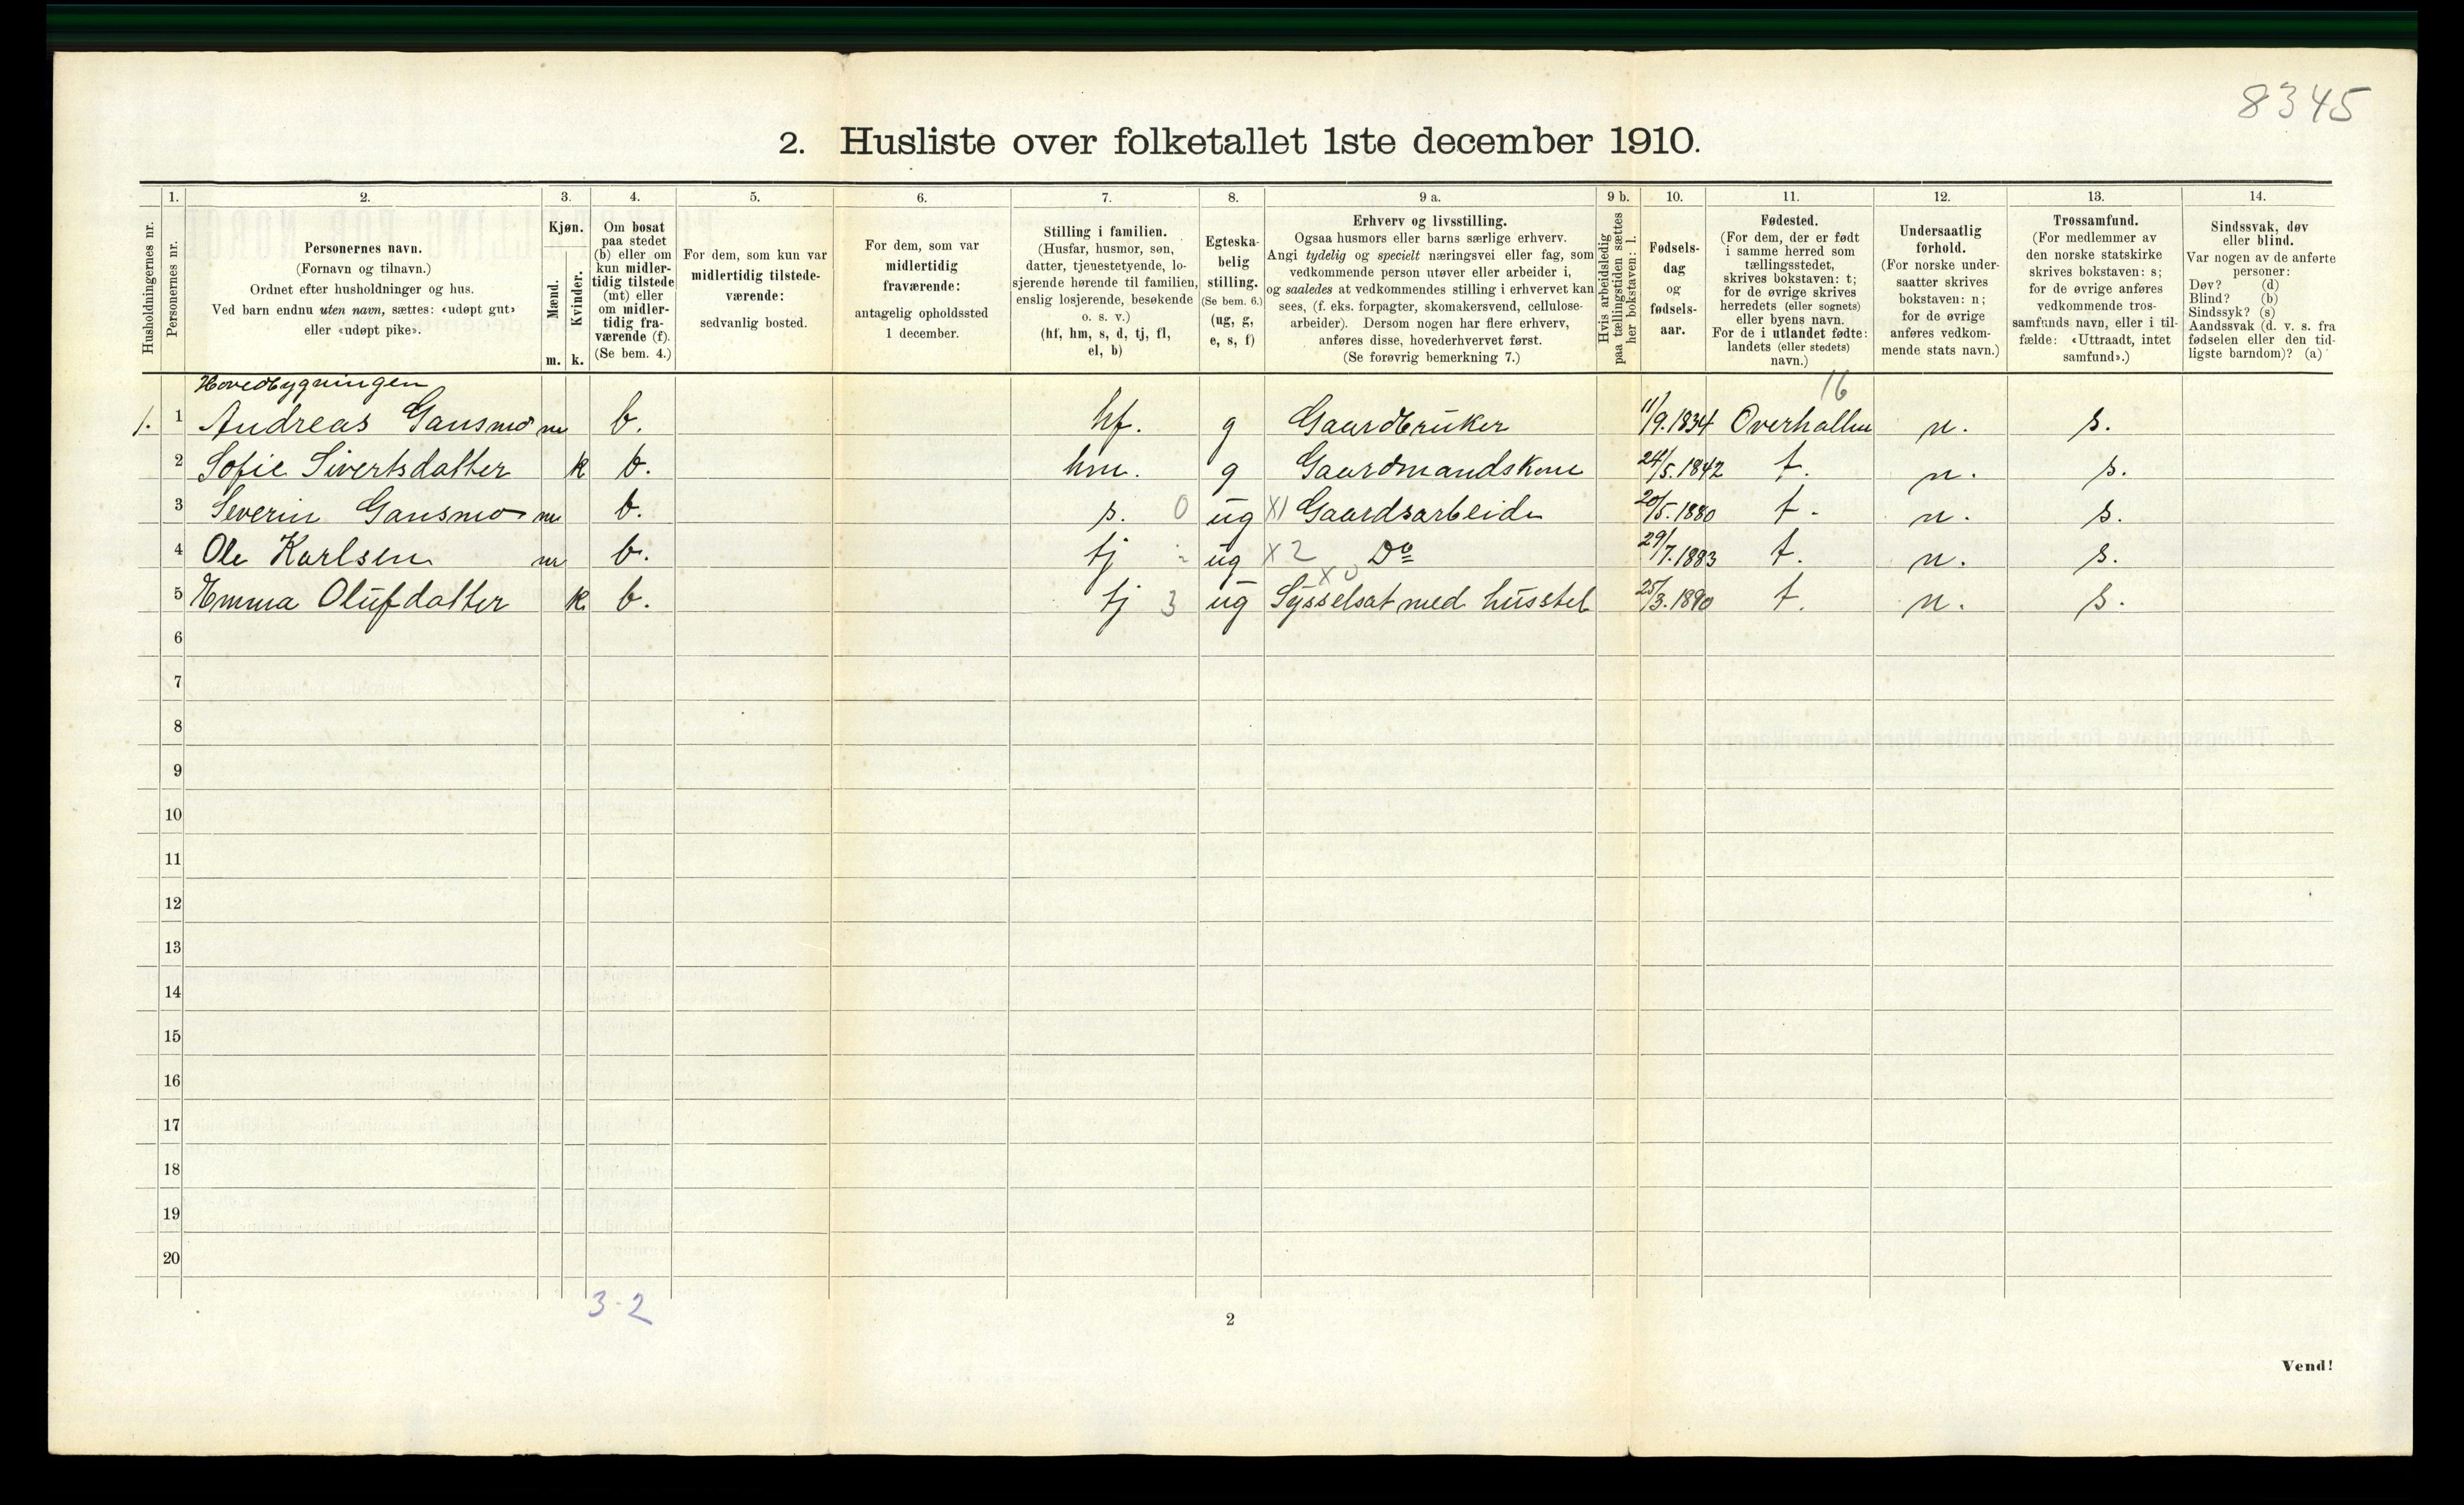 8345
2. Husliste over folketallet 1ste december 1910.
Husholdningernes nr.
1. Personernes nr.
2. Personernes navn.
(Fornavn og tilnavn.)
Ordnet efter husholdninger og hus.
Ved barn endnu uten navn, sættes: «udøpt gut»
eller «udøpt pike».
3. Kjøn.
Mænd. m.
Kvinder. k.
4. Om bosat
paa stedet
(b) eller om
kun midler-
tidig tilstede
(mt) eller
om midler-
tidig fra-
værende (f).
(Se bem. 4.)
5. For dem, som kun var
midlertidig tilstede-
værende:
sedvanlig bosted.
6. For dem, som var
midlertidig
fraværende:
antagelig opholdssted
1 december.
7. Stilling i familien.
(Husfar, husmor, søn,
datter, tjenestetyende, lo-
sjerende hørende til familien,
enslig losjerende, besøkende
o. s. v.)
(hf, hm, s, d, tj, fl,
el, b)
8. Egteska-
belig
stilling.
(Se bem. 6.)
(ug, g,
e, s, f)
9 a. Erhverv og livsstilling.
Ogsaa husmors eller barns særlige erhverv.
Angi tydelig og specielt næringsvei eller fag, som
vedkommende person utøver eller arbeider i,
og saaledes at vedkommendes stilling i erhvervet kan
sees, (f. eks. forpagter, skomakersvend, cellulose-
arbeider). Dersom nogen har flere erhverv,
anføres disse, hovederhvervet først.
(Se forøvrig bemerkning 7.)
9 b. Hvis arbeidsledig
paa tællingstiden sættes
her bokstaven: l.
10. Fødsels-
dag
og
fødsels-
aar.
11. Fødested.
(For dem, der er født
i samme herred som
tællingsstedet,
skrives bokstaven: t;
for de øvrige skrives
herredets (eller sognets)
eller byens navn.
For de i utlandet fødte:
landets (eller stedets)
navn.)
12. Undersaatlig
forhold.
(For norske under-
saatter skrives
bokstaven: n;
for de øvrige
anføres vedkom-
mende stats navn.)
13. Trossamfund.
(For medlemmer av
den norske statskirke
skrives bokstaven: s;
for de øvrige anføres
vedkommende tros-
samfunds navn, eller i til-
fælde: «Uttraadt, intet
samfund».)
14. Sindssvak, døv
eller blind.
Var nogen av de anførte
personer:
Døv? (d)
Blind? (b)
Sindssyk? (s)
Aandssvak (d. v. s. fra
fødselen eller den tid-
ligste barndom)? (a)
Hovedbygningen
16
1. 1 Andreas Gansmo m b. hf. g Gaardbruker 11/9.1834 Overhallen n. s.
2 Sofie Sivertsdatter k b. hm. g Gaardmandskone 24/5.1842 t. n. s.
3 Severin Gansmo m b. s. 0 ug X1 Gaardsarbeide 20/5.1880 t. n. s.
4 Ole Karlsen m b. tj - ug X2 Do 29/7.1883 t. n. s.
X0
5 Emma Olufdatter k. b. tj 3 ug Sysselsat med husstel 25/3.1890 t. n. s.
6
7
8
9
10
11
12
13
14
15
16
17
18
19
20
3-2
2
Vend!